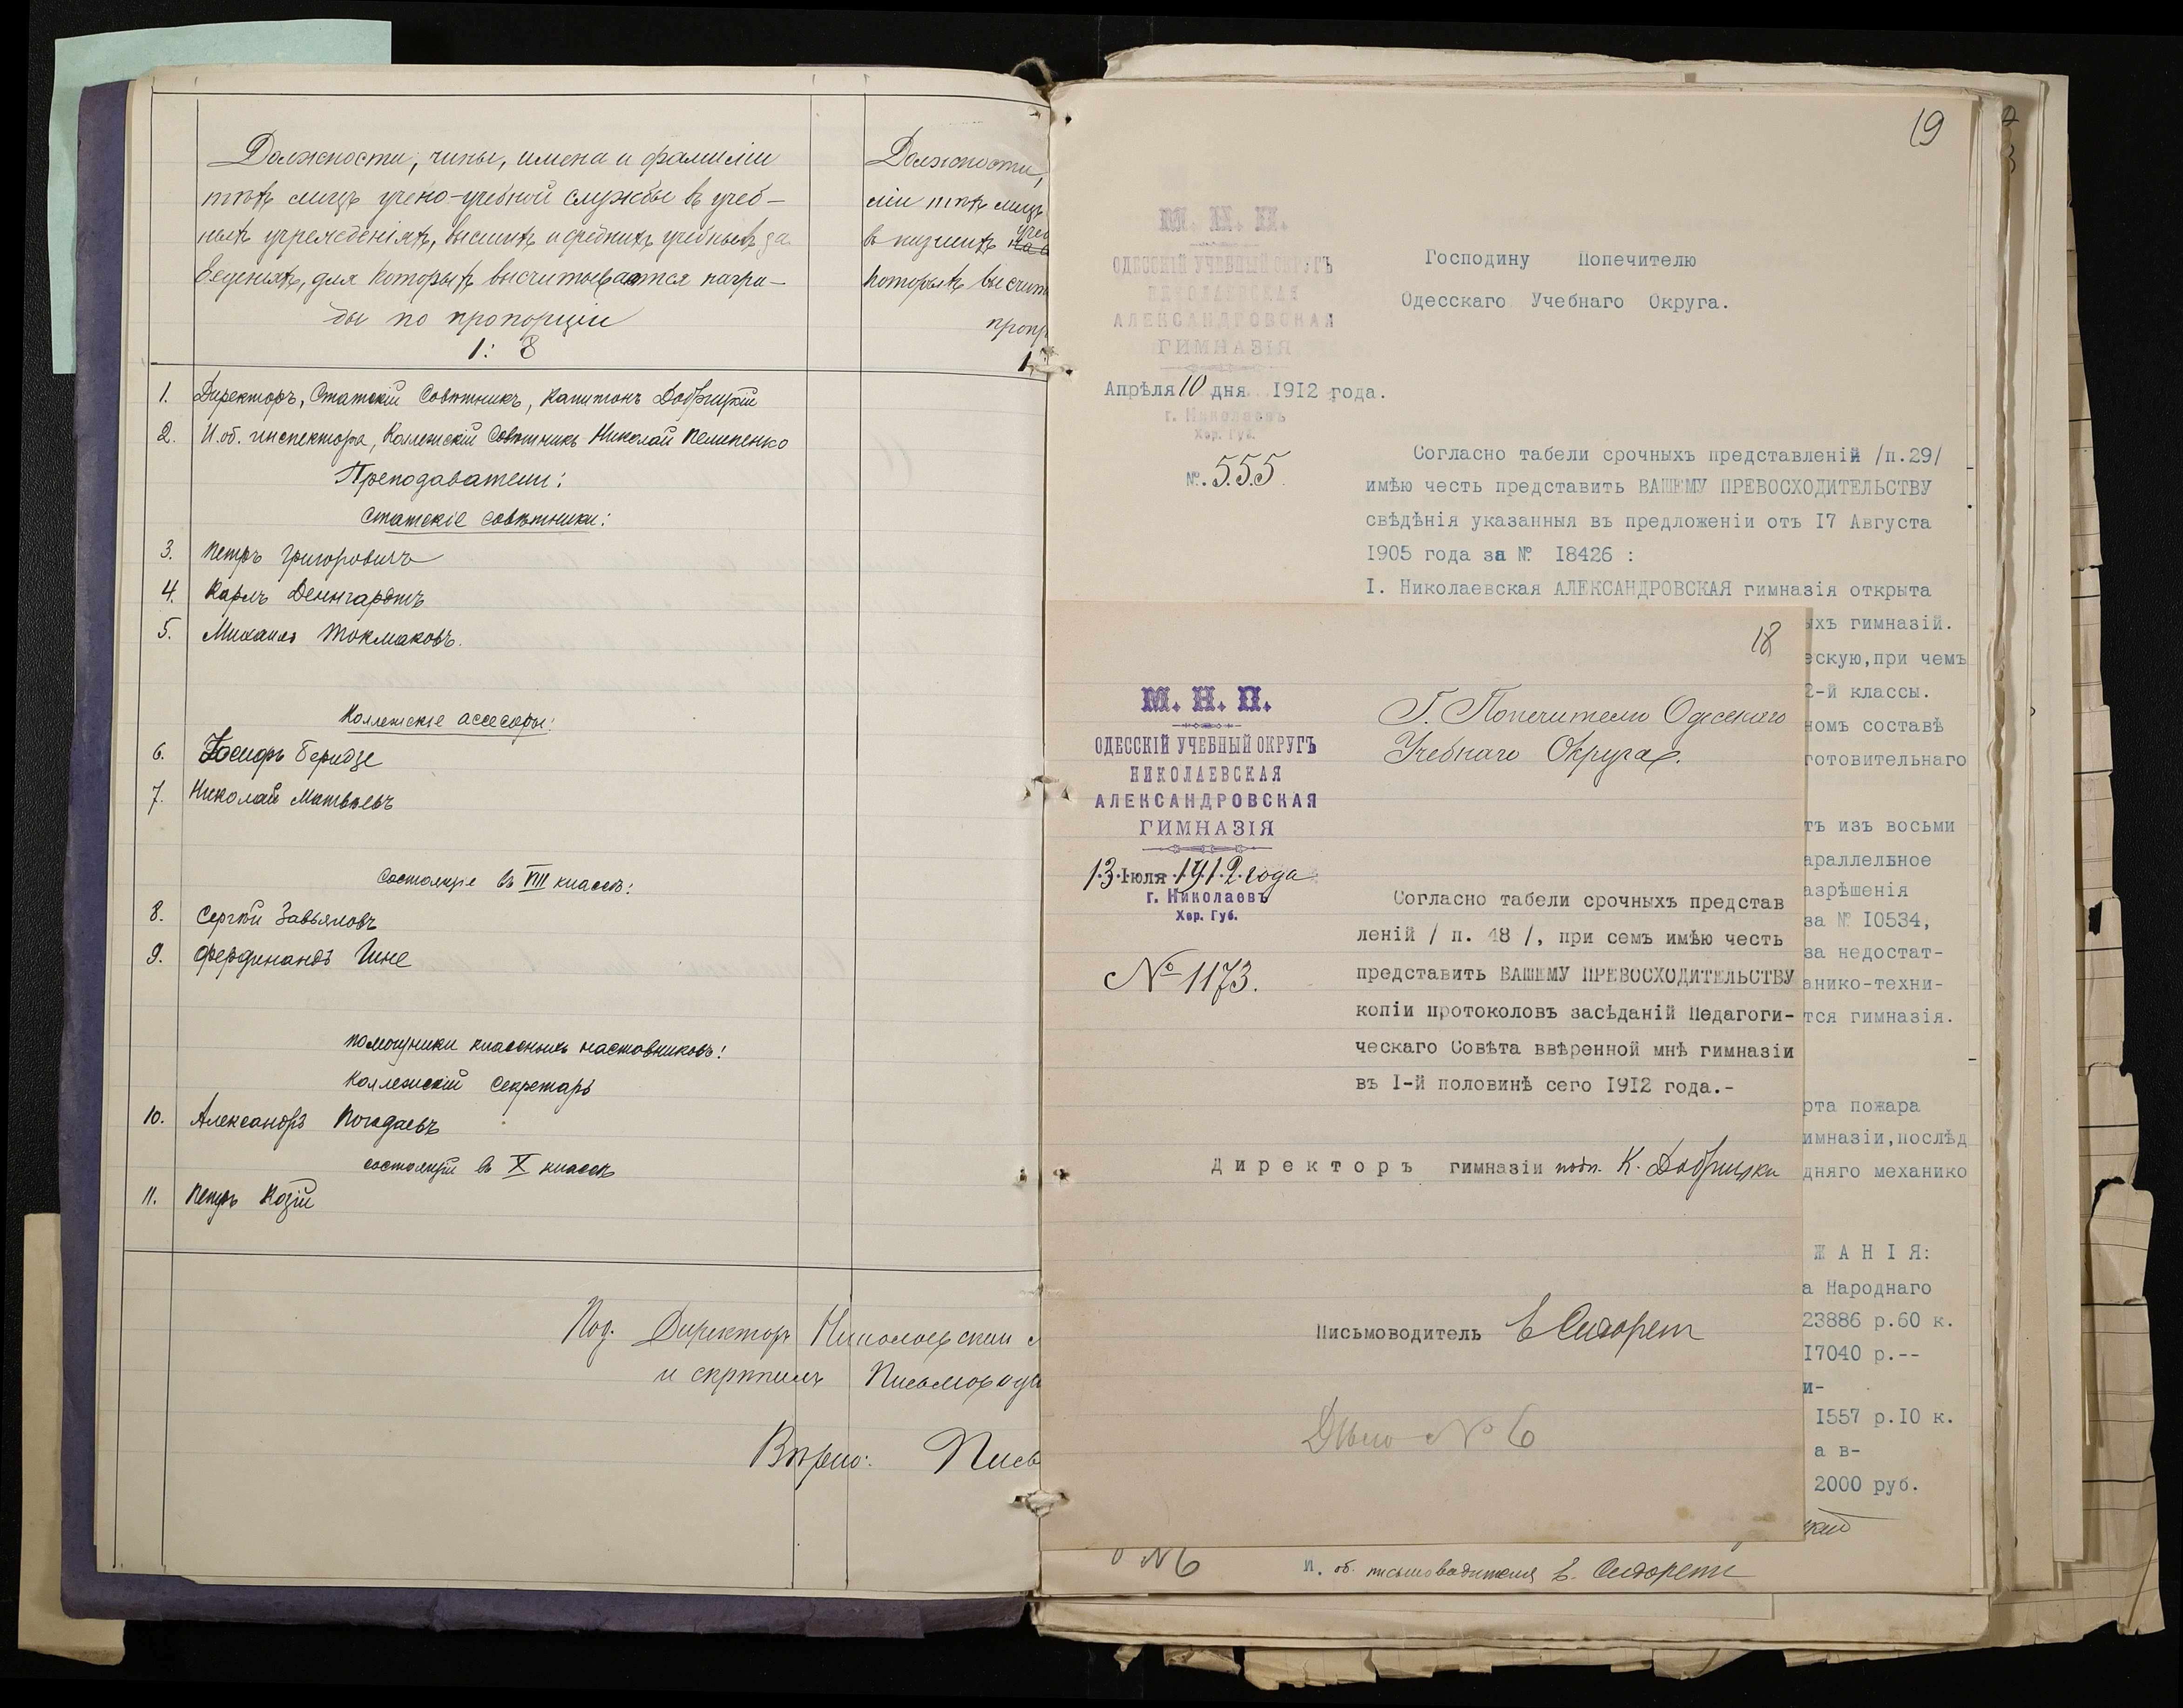 Должности, чины, имена и фамиліи
тѣхъ лицъ учено-учебной службы въ учеб-
ныхъ учрежденіяхъ, высшихъ и среднихъ учебныхъ за
веденіяхъ, для которыхъ высчитываются награ-
ды по пропорціи
1: 8
1. Директоръ, Статскій Совѣтникъ, Капитонъ Добрицкій
2. И. об. инспектора, Коллежскій Совѣтникъ Николай Пелипенко
Преподаватели:
Статскіе совѣтники:
3. Петръ Григоровичъ
4. Карлъ Денгардтъ
5. Михаилъ Токмаковъ.
Коллежскіе ассесоры:
6. Іосифъ Беридзе
7. Николай Матвѣевъ
Состоящіе въ VIII классѣ:
8. Сергѣй Завьяловъ
9. Фердинандъ Гине
помощники классныхъ наставниковъ:
Коллежскій Секретарь
10. Александръ Погодаевъ
состоящій въ X классѣ
11. Петръ Козій
Под. Директоръ Николаевской
и скрѣпилъ Письмовод
Вѣрно: Пись
Должности,
ліи тѣхъ лицъ
въ низшихъ
которыхъ высчит
проп
1:
19
М. Н. П.
ОДЕССКІЙ УЧЕБНЫЙ ОКРУГЪ
НИКОЛАЕВСКАЯ
АЛЕКСАНДРОВСКАЯ
ГИМНАЗІЯ
Апрѣля 10 дня 1912 года.
г. Николаевъ
Хер. Губ.
№. 555.
Господину Попечителю
Одесскаго Учебнаго Округа.
Согласно табели срочныхъ представленій /п.29/
имѣю честь представить ВАШЕМУ ПРЕВОСХОДИТЕЛЬСТВУ
свѣдѣнія указанныя въ предложеніи отъ I7 Августа
I905 года за № I8426 :
I. Николаевская АЛЕКСАНДРОВСКАЯ гимназія открыта
ыхъ гимназій.
ескую,при чемъ
2-й классы.
номъ составѣ
готовительнаго
тъ изъ восьми
араллельное
азрѣшенія
за № I0534,
за недостат-
анико-техни-
тся гимназія.
рта пожара
имназіи,послѣд
дняго механико
Ж А Н І Я:
а Народнаго
23886 р.60 к.
I7040 р.--
и-
I557 р.I0 к.
а в-
2000 руб.
кій
18
М. Н. П.
ОДЕССКІЙ УЧЕБНЫЙ ОКРУГЪ
НИКОЛАЕВСКАЯ
АЛЕКСАНДРОВСКАЯ
ГИМНАЗІЯ
13 Іюля 1912 года
г. Николаевъ
Хер. Губ.
№ 1173.
Г. Попечителю Одесскаго
Учебнаго Округа.
Согласно табели срочныхъ представ
леній / п. 48 /, при семъ имѣю честь
представить ВАШЕМУ ПРЕВОСХОДИТЕЛЬСТВУ
копіи протоколовъ засѣданій Педагоги-
ческаго Совѣта ввѣренной мнѣ гимназіи
въ I-й половинѣ сего I9I2 года.-
Директоръ гимназіи подп. К. Добрицкій
Письмоводитель Е Сидорет
Дѣло № 6
№ 6
И. об. письмоводителя Е. Сидорет